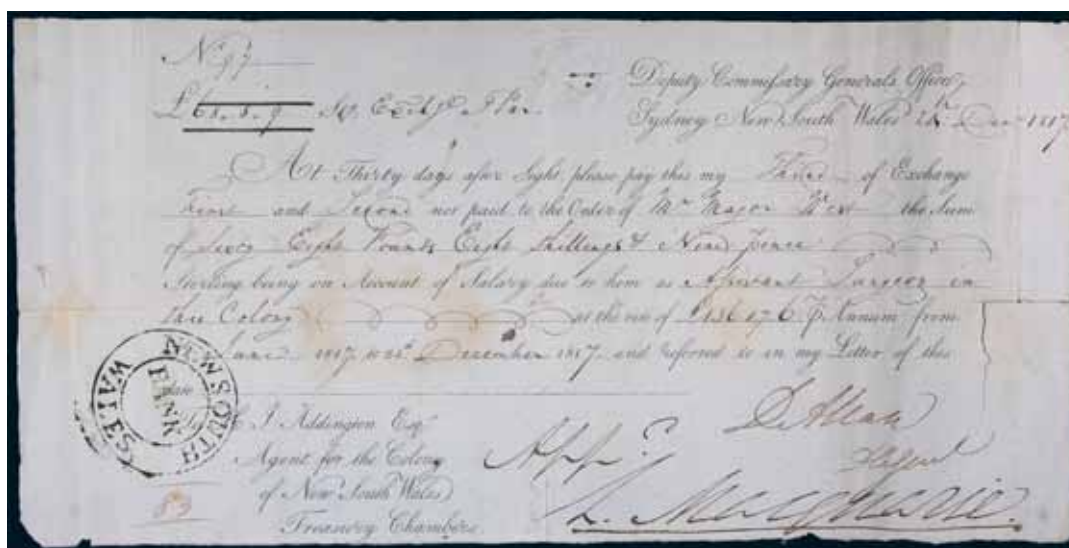 No. 97
£68.8.9 Stg. Exchge.
Deputy Commissary Generals Office,
Sydney New South Wales 24th Decr 1817
At Thirty days after Sight please pay this my Third of Exchange
First and Second not paid to the Order of Mr Major West the Sum
of Sixty Eight Pounds Eight Shillings & Nine pence
Sterling being on Account of Salary due to him as Assistant Surgeon in
this Colony at the rate of £136.17.6 P. Annum from
June 1817 to 24 December 1817 and referred to in my Letter of this
date
J. Addington Esqr
Agent for the Colony
of New South Wales
Treasury Chambers.
NEW SOUTH WALES
BANK
83
Appd.
D. Allan
L. Macquarie.